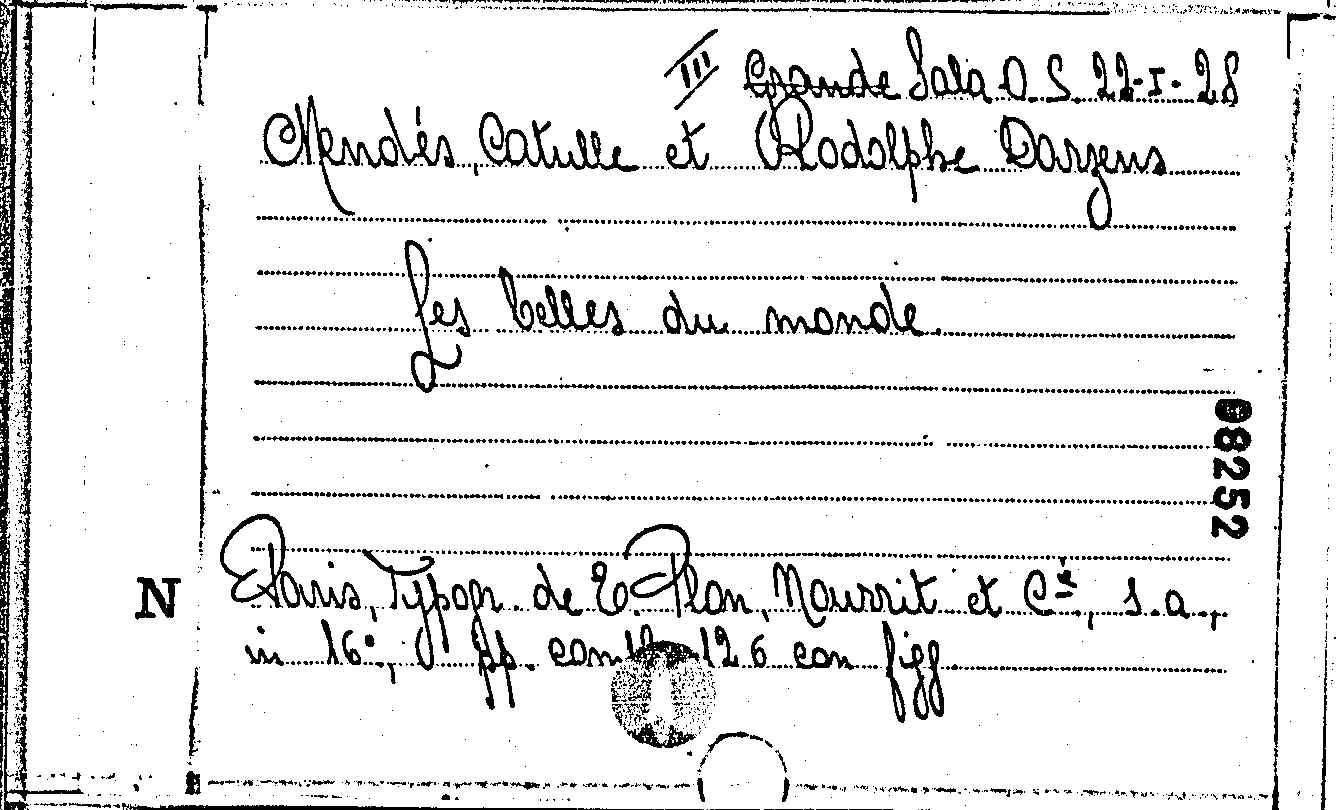 III Grande Sala O. S. 22-I-28
Mendés, Catulle et Rodolphe Darzens
Les belles du monde.
98252
Paris, Typogr. de E. Plon, Nourrit et Cie, s. a.,
N
in 16°, pp. 126 con figg